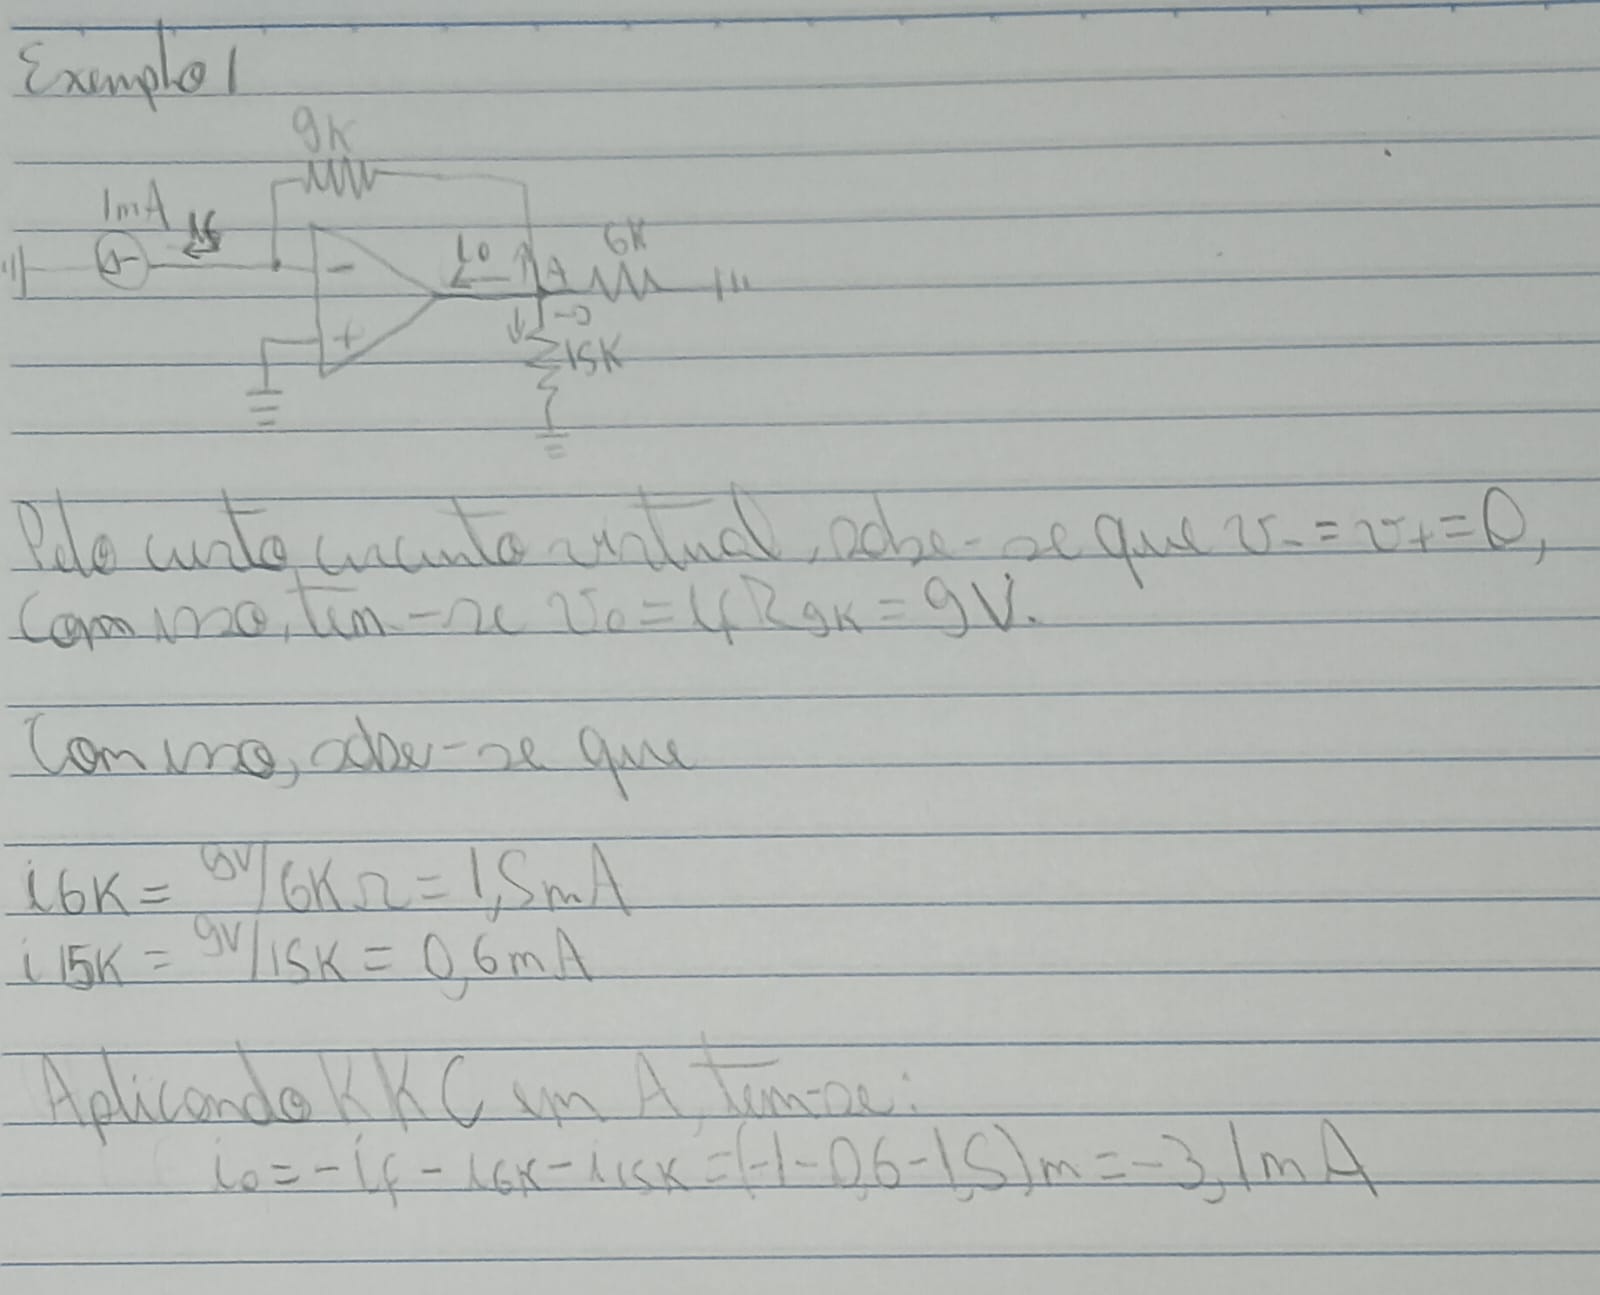 Exemplo 1
9K
1mA
if
-
io
A
6K
+
15K
Pelo curto circuito virtual, sabe-se que v- = v+ = 0,
Com isso, tem-se vo = if R9K = 9V.
Com isso, sabe-se que
i6K = 9V/6KΩ = 1,5mA
i15K = 9V/15K = 0,6mA
Aplicando KKC em A, tem-se:
io = -if - i6K - i15K = (-1-0,6-1,5)m = -3,1mA